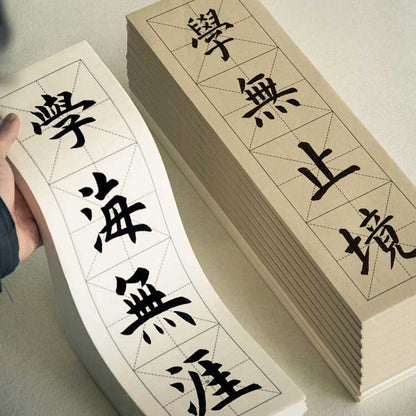 學海無涯
學無止境